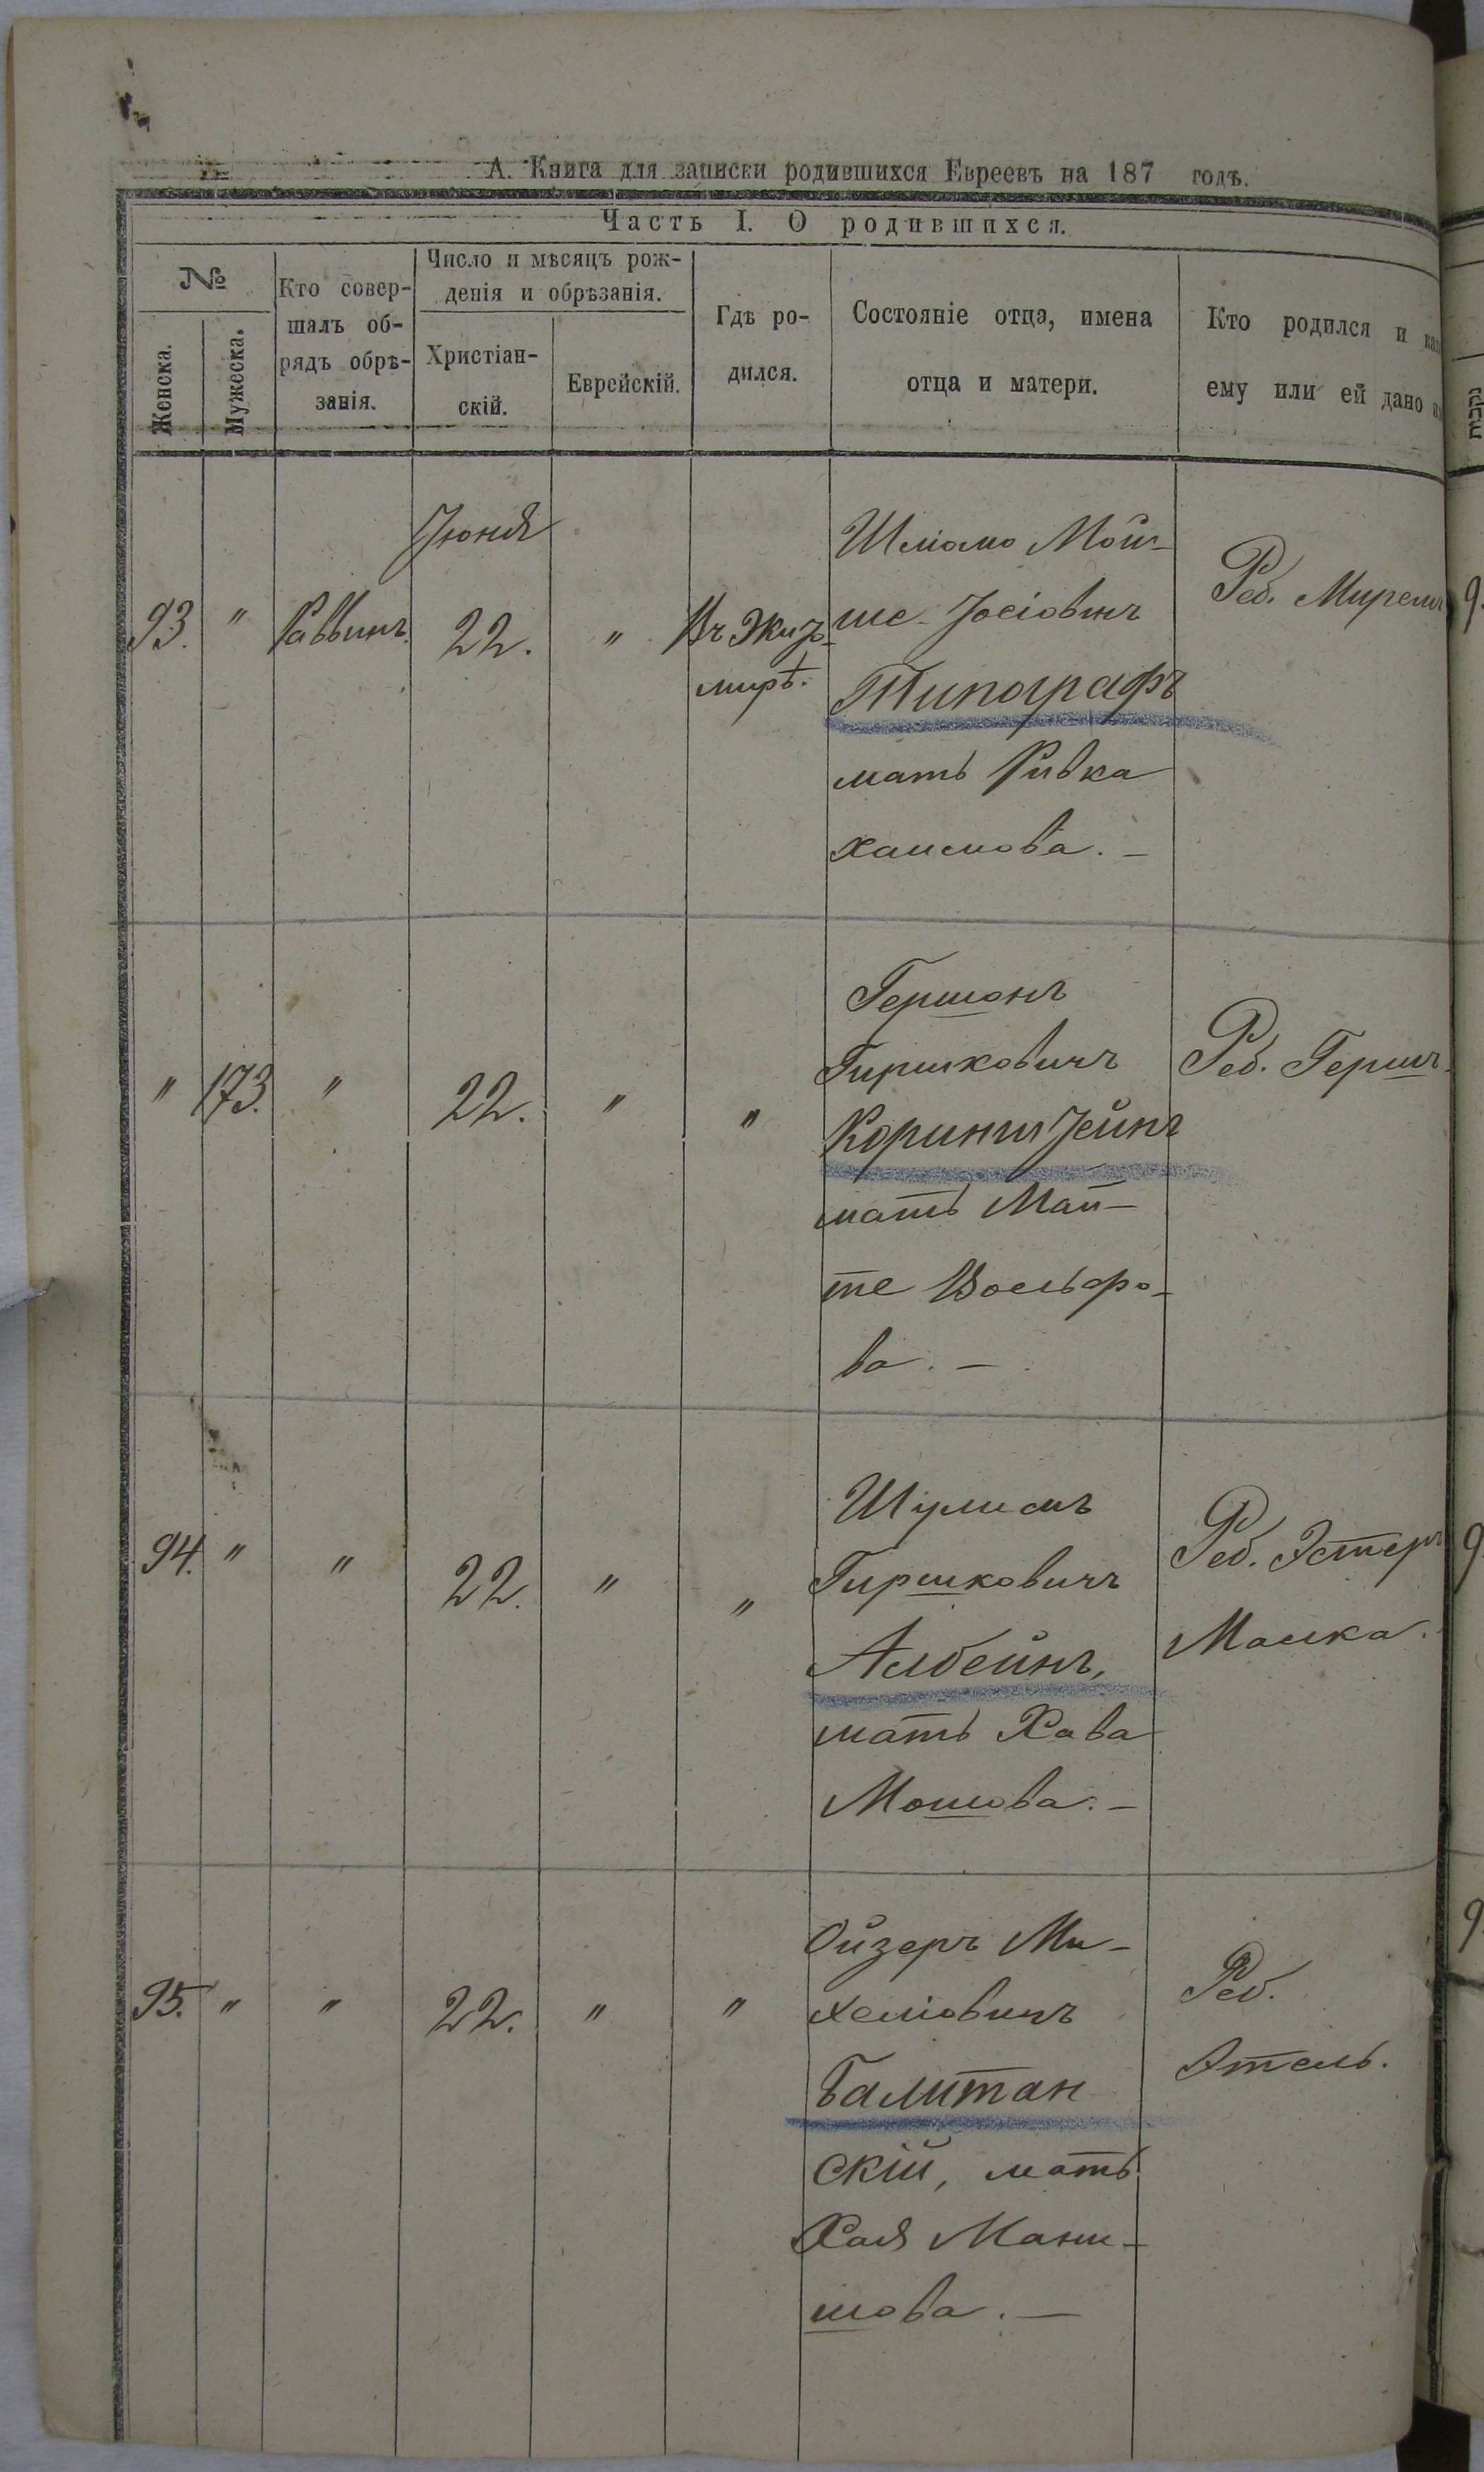 А. Книга для записки родившихся Евреевъ на 187 годъ.
Часть I. О родившихся.
№
Женска.
Мужеска.
Кто совер-
шалъ об-
рядъ обрѣ-
занія.
Число и мѣсяцъ рож-
денія и обрѣзанія.
Христіан-
скій.
Еврейскій.
Гдѣ ро-
дился.
Состояніе отца, имена
отца и матери.
Кто родился и
ему или ей дано
93. " Раввинъ. Іюня 22. "
Въ Жито-
мирѣ.
Шлiомо Мой-
ше-Іосіовичъ
Типографъ
мать Ривка
Хаимова. —
Реб. Миремъ
" 173. " 22. " "
Гершонъ
Гиршковичъ
Коринштейнъ
мать Маи-
те Вольфо-
ва. —
Реб. Гершъ.
94. " " 22. " "
Шулимъ
Гиршковичъ
Албейнъ,
мать Хава
Мошова. —
Реб. Эстеръ
Малка.
95. " " 22. " "
Ойзеръ Ми-
хеліовичъ
Балитан
скій, мать
Хая Мани-
шова. —
Реб.
Этель.